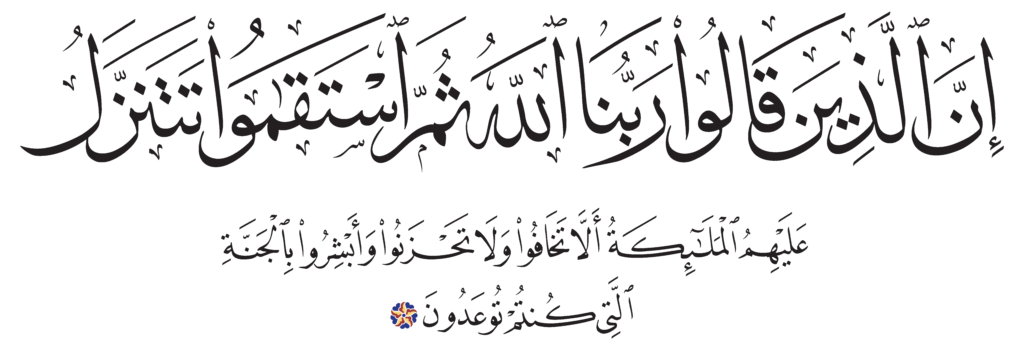 إِنَّ ٱلَّذِينَ قَالُوا۟ رَبُّنَا ٱللَّهُ ثُمَّ ٱسْتَقَـٰمُوا۟ تَتَنَزَّلُ
عَلَيْهِمُ ٱلْمَلَـٰٓئِكَةُ أَلَّا تَخَافُوا۟ وَلَا تَحْزَنُوا۟ وَأَبْشِرُوا۟ بِٱلْجَنَّةِ
ٱلَّتِى كُنتُمْ تُوعَدُونَ